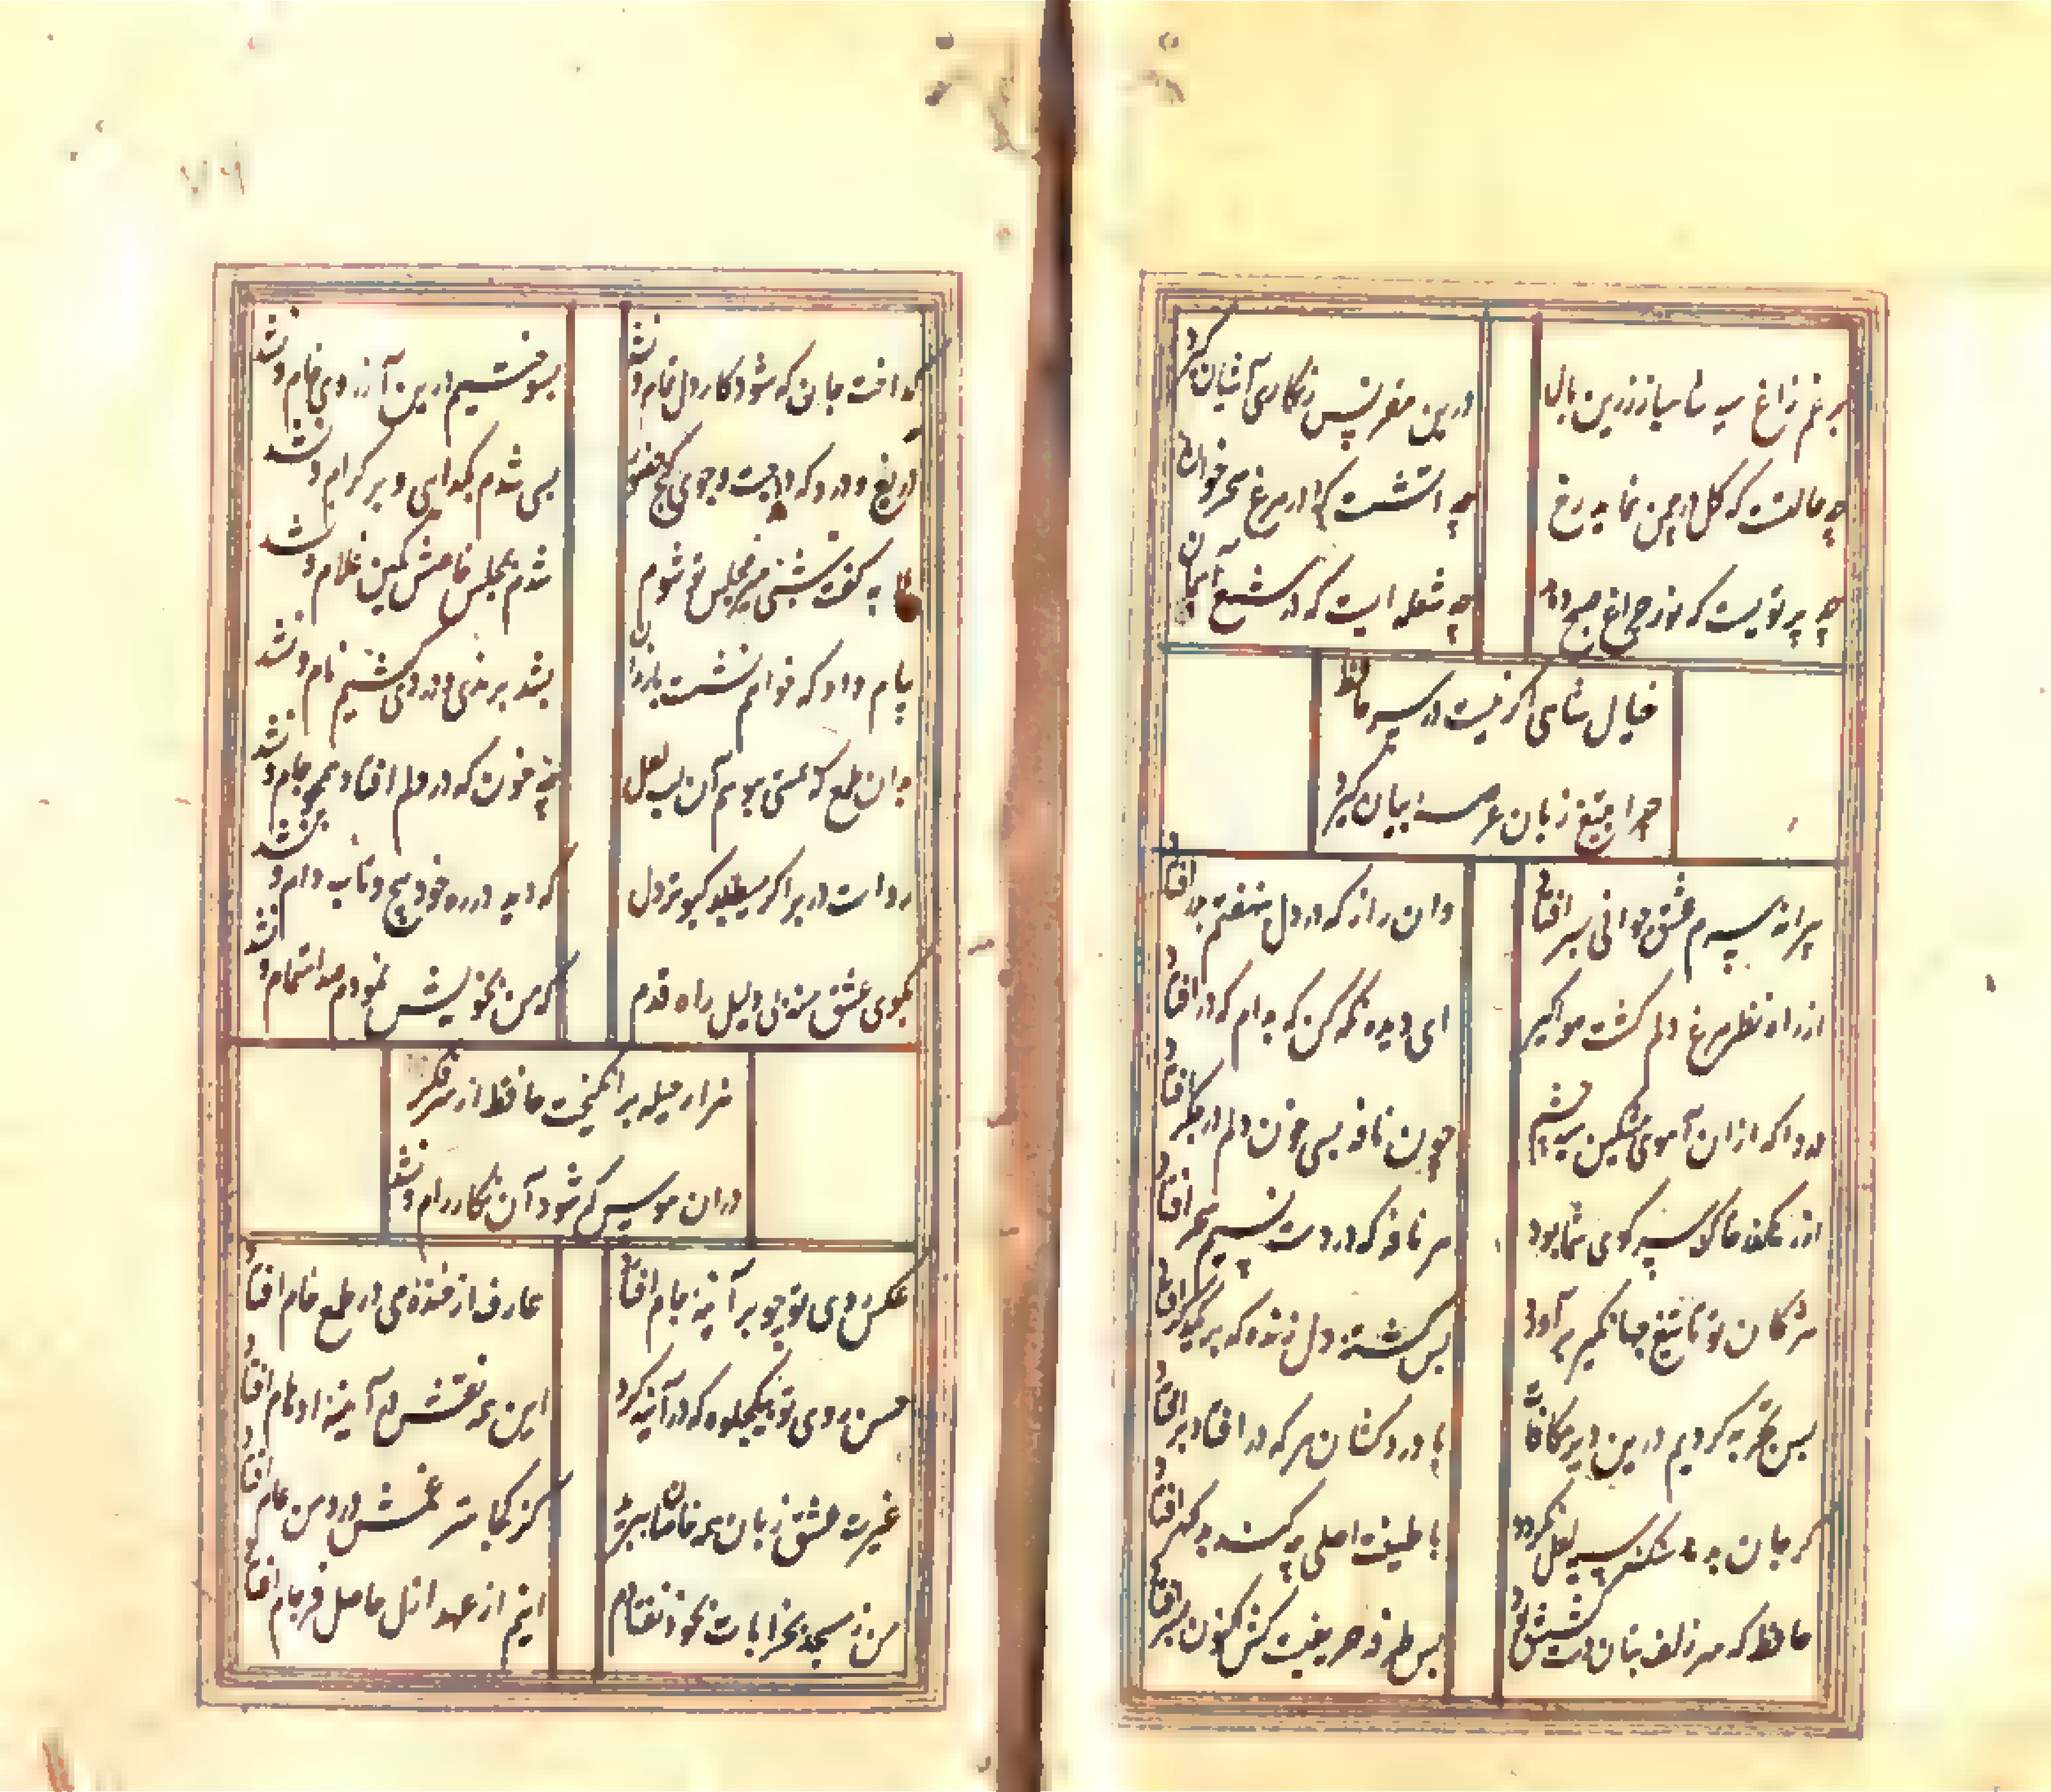 برغم زاغ سیه شاهباز زرین بال
درین مقرنس زنگاری آشیان گیرد
چه حالتست که گل در چمن نماید رخ
چه آتشست که در مرغ سحرخوان گیرد
چه پرتویست که نور چراغ صبح دهد
چه شعله ایست که در شمع آسمان گیرد
خیال شاهی اگر نیست در سر حافظ
چرا بتیغ زبان عرصه بیان گیرد
پیرانه سرم عشق جوانی بسر افتاد
وان راز که در دل بنهفتم بدر افتاد
از راه نظر مرغ دلم گشت هواگیر
ای دیده نگه کن که بدام که در افتاد
دردا که ازان آهوی مشکین سیه چشم
چون نافه بسی خون دلم در جگر افتاد
از رهگذر خاک سر کوی شما بود
هر نافه که در دست نسیم سحر افتاد
مژگان تو تا تیغ جهانگیر برآورد
بس کشته دل زنده که بر یکدگر افتاد
بس تجربه کردیم درین دیر مکافات
با دردکشان هر که در افتاد بر افتاد
گر جان بدهد سنگ سیه لعل نگردد
با طینت اصلی چه کند بد گهر افتاد
حافظ که سر زلف بتان دست کشش بود
بس طرفه حریفیست کش اکنون بسر افتاد
گداخت جان که شود کار دل تمام و نشد
بسوختیم درین آرزوی خام و نشد
دریغ و درد که در جست و جوی گنج حضور
بسی شدم بگدایی بر کرام و نشد
به گفت شبی میر مجلس تو شوم
شدم بمجلس خاصش کمین غلام و نشد
پیام داد که خواهم نشست با رندان
بشد برندی و دردی کشیم نام و نشد
بدان طمع که بمستی ببوسم آن لب لعل
چه خون که در دلم افتاد همچو جام و نشد
رواست در بر اگر میطپد کبوتر دل
که دید در ره خود پیچ و تاب دام و نشد
بکوی عشق منه بی دلیل راه قدم
که من بخویش نمودم صد اهتمام و نشد
هزار حیله برانگیخت حافظ از سر فکر
دران هوس که شود آن نگار رام و نشد
عکس روی تو چو بر آینه جام افتاد
عارف از خنده می در طمع خام افتاد
حسن روی تو بیک جلوه که در آینه کرد
این همه نقش در آیینه اوهام افتاد
غیرت عشق زبان همه خاصان ببرید
کز کجا سر غمش در دهن عام افتاد
من ز مسجد بخرابات نه خود افتادم
اینم از عهد ازل حاصل فرجام افتاد